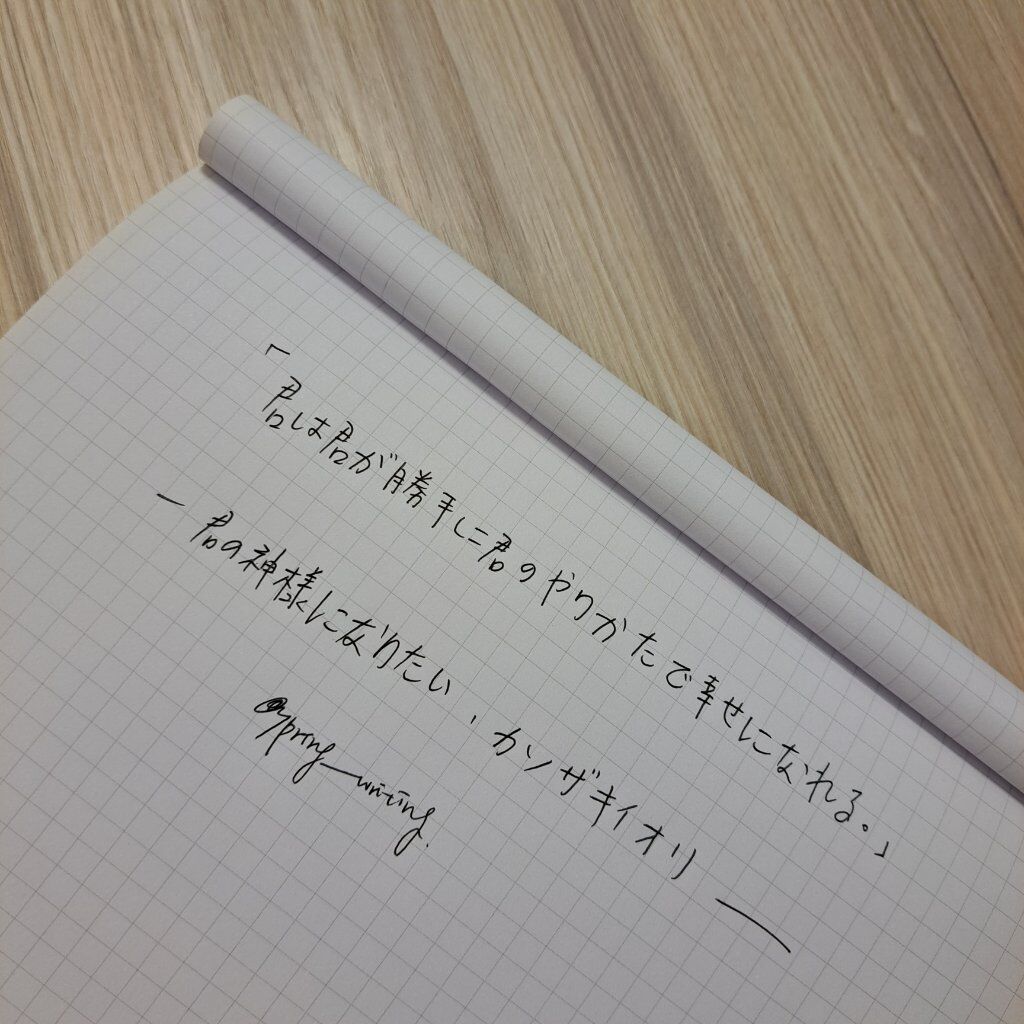 「君は君が勝手に君のやりかたで幸せになれる。」
— 君の神様になりたい ' カンザキイオリ —
@ypring_writing.